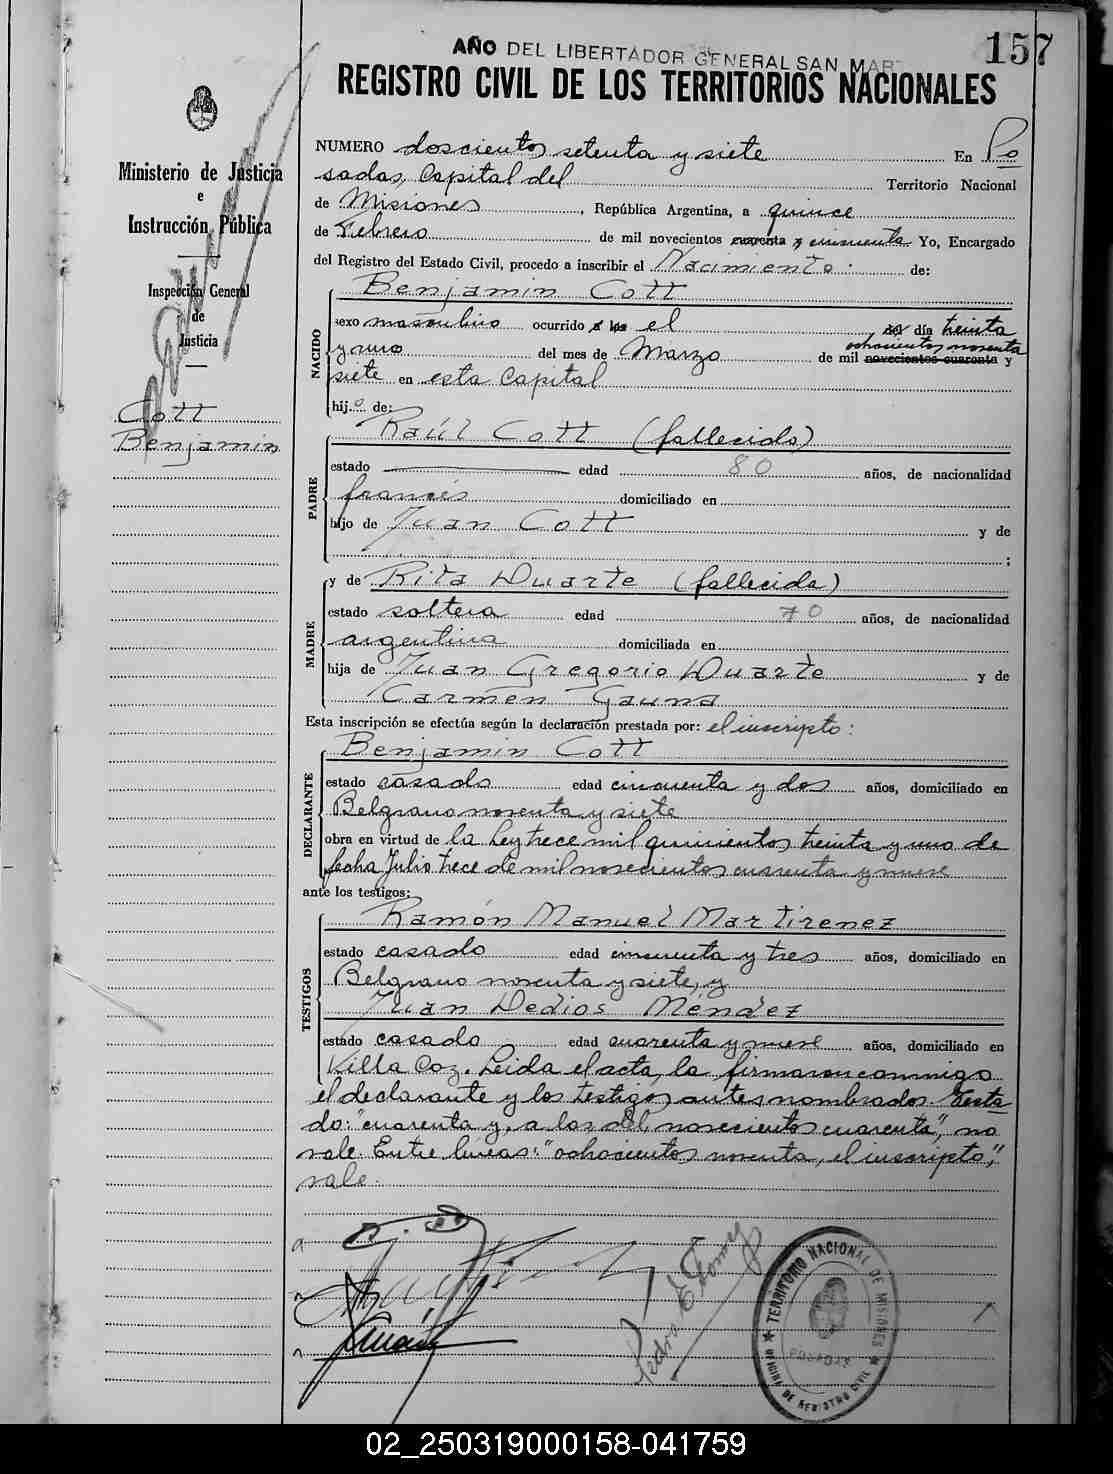 157
AÑO DEL LIBERTADOR GENERAL SAN MART
REGISTRO CIVIL DE LOS TERRITORIOS NACIONALES
Ministerio de Justicia
e
Instrucción Pública
Inspección General
de
Justicia
Cott
Benjamin
NUMERO doscientos setenta y siete En Po
sadas, Capital del Territorio Nacional
de Misiones, República Argentina, a quince
de Febrero de mil novecientos cuarenta y cincuenta Yo, Encargado
del Registro del Estado Civil, procedo a inscribir el Nacimiento de:
NACIDO
Benjamin Cott
sexo masculino ocurrido a las el del día treinta
ochocientos noventa
y uno del mes de Marzo de mil novecientos cuarenta y
siete en esta Capital
hij o de:
PADRE
Raúl Cott (fallecido)
estado edad 80 años, de nacionalidad
francés domiciliado en
hijo de Juan Cott y de
;
MADRE
y de Rita Duarte (fallecida)
estado soltera edad 70 años, de nacionalidad
argentina domiciliada en
hija de Juan Gregorio Duarte y de
Carmen Gauna
Esta inscripción se efectúa según la declaración prestada por: el inscripto:
DECLARANTE
Benjamin Cott
estado casado edad cincuenta y dos años, domiciliado en
Belgrano noventa y siete
obra en virtud de la Ley trece mil quinientos treinta y uno de
fecha Julio trece de mil novecientos cuarenta y nueve
ante los testigos:
TESTIGOS
Ramón Manuel Martirenez
estado casado edad cincuenta y tres años, domiciliado en
Belgrano noventa y siete, y
Juan Dedios Méndez
estado casado edad cuarenta y nueve años, domiciliado en
Villa Coz. Leida el acta, la firmaron conmigo
el declarante y los testigos antes nombrados. Testa
do: "cuarenta y, a las, del, novecientos cuarenta", no
vale. Entre lineas: "ochocientos noventa, el inscripto",
vale.
TERRITORIO NACIONAL DE MISIONES
POSADAS
OFICINA DE REGISTRO CIVIL
02_250319000158-041759